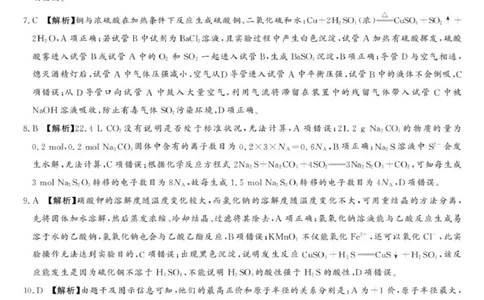 7. C 【解析】铜与浓硫酸在加热条件下反应生成硫酸铜、二氧化硫和水:Cu+2H₂SO₄(浓)=△=CuSO₄+SO₂↑+
2H₂O,A项正确;若试管B中试剂为BaCl₂溶液,且实验过程中产生白色沉淀,试管A加热有硫酸挥发,硫酸
酸雾进入试管B或试管A中的O₂和SO₂一起进入试管B,生成BaSO₄沉淀,B项正确;导管D与空气相通,
熄灭酒精灯后,试管A中气体压强减小,空气从D导管进入试管A中平衡压强,试管B中的液体不会倒吸,C
项错误;从D导管口向试管A中鼓入大量空气,利用气流将滞留在装置中的残留气体带入试管C中被
NaOH溶液吸收,防止有毒气体SO₂污染环境,D项正确。
8. B 【解析】22.4 L CO₂没有说明是否处于标准状况,无法计算,A项错误;21.2 g Na₂CO₃的物质的量为
0.2 mol,0.2 mol Na₂CO₃固体中含有的离子数目为0.2×3×N_A=0.6N_A,B项正确;Na₂S溶液中S²⁻会发
生水解,无法计算,C项错误;根据化学反应方程式2Na₂S+Na₂CO₃+4SO₂=3Na₂S₂O₃+CO₂,可知每生成
3 mol Na₂S₂O₃转移的电子数目为8N_A,故每生成1.5 mol Na₂S₂O₃转移的电子数目为4N_A,D项错误。
9. A 【解析】硝酸钾的溶解度随温度变化较大,而氯化钠的溶解度随温度变化不大,可用重结晶的方法分离,
先将固体加水溶解,然后蒸发浓缩、冷却结晶、过滤将其除去,A项正确;氢氧化钠溶液能与乙酸反应生成易
溶于水的乙酸钠,氢氧化钠也会与乙酸乙酯反应,B项错误;KMnO₄不仅能氧化Fe²⁺,还可以氧化Cl⁻,此实
验操作无法达到实验目的,C项错误;出现黑色沉淀,说明发生反应CuSO₄+H₂S=CuS↓+H₂SO₄,该反
应能发生是因为硫化铜不溶于H₂SO₄,不能说明H₂SO₄的酸性强于H₂S的酸性,D项错误。
10. D 【解析】由题干及图示信息可知,他们的最高正价和原子半径的关系分别是:A为+1价,原子半径最大,